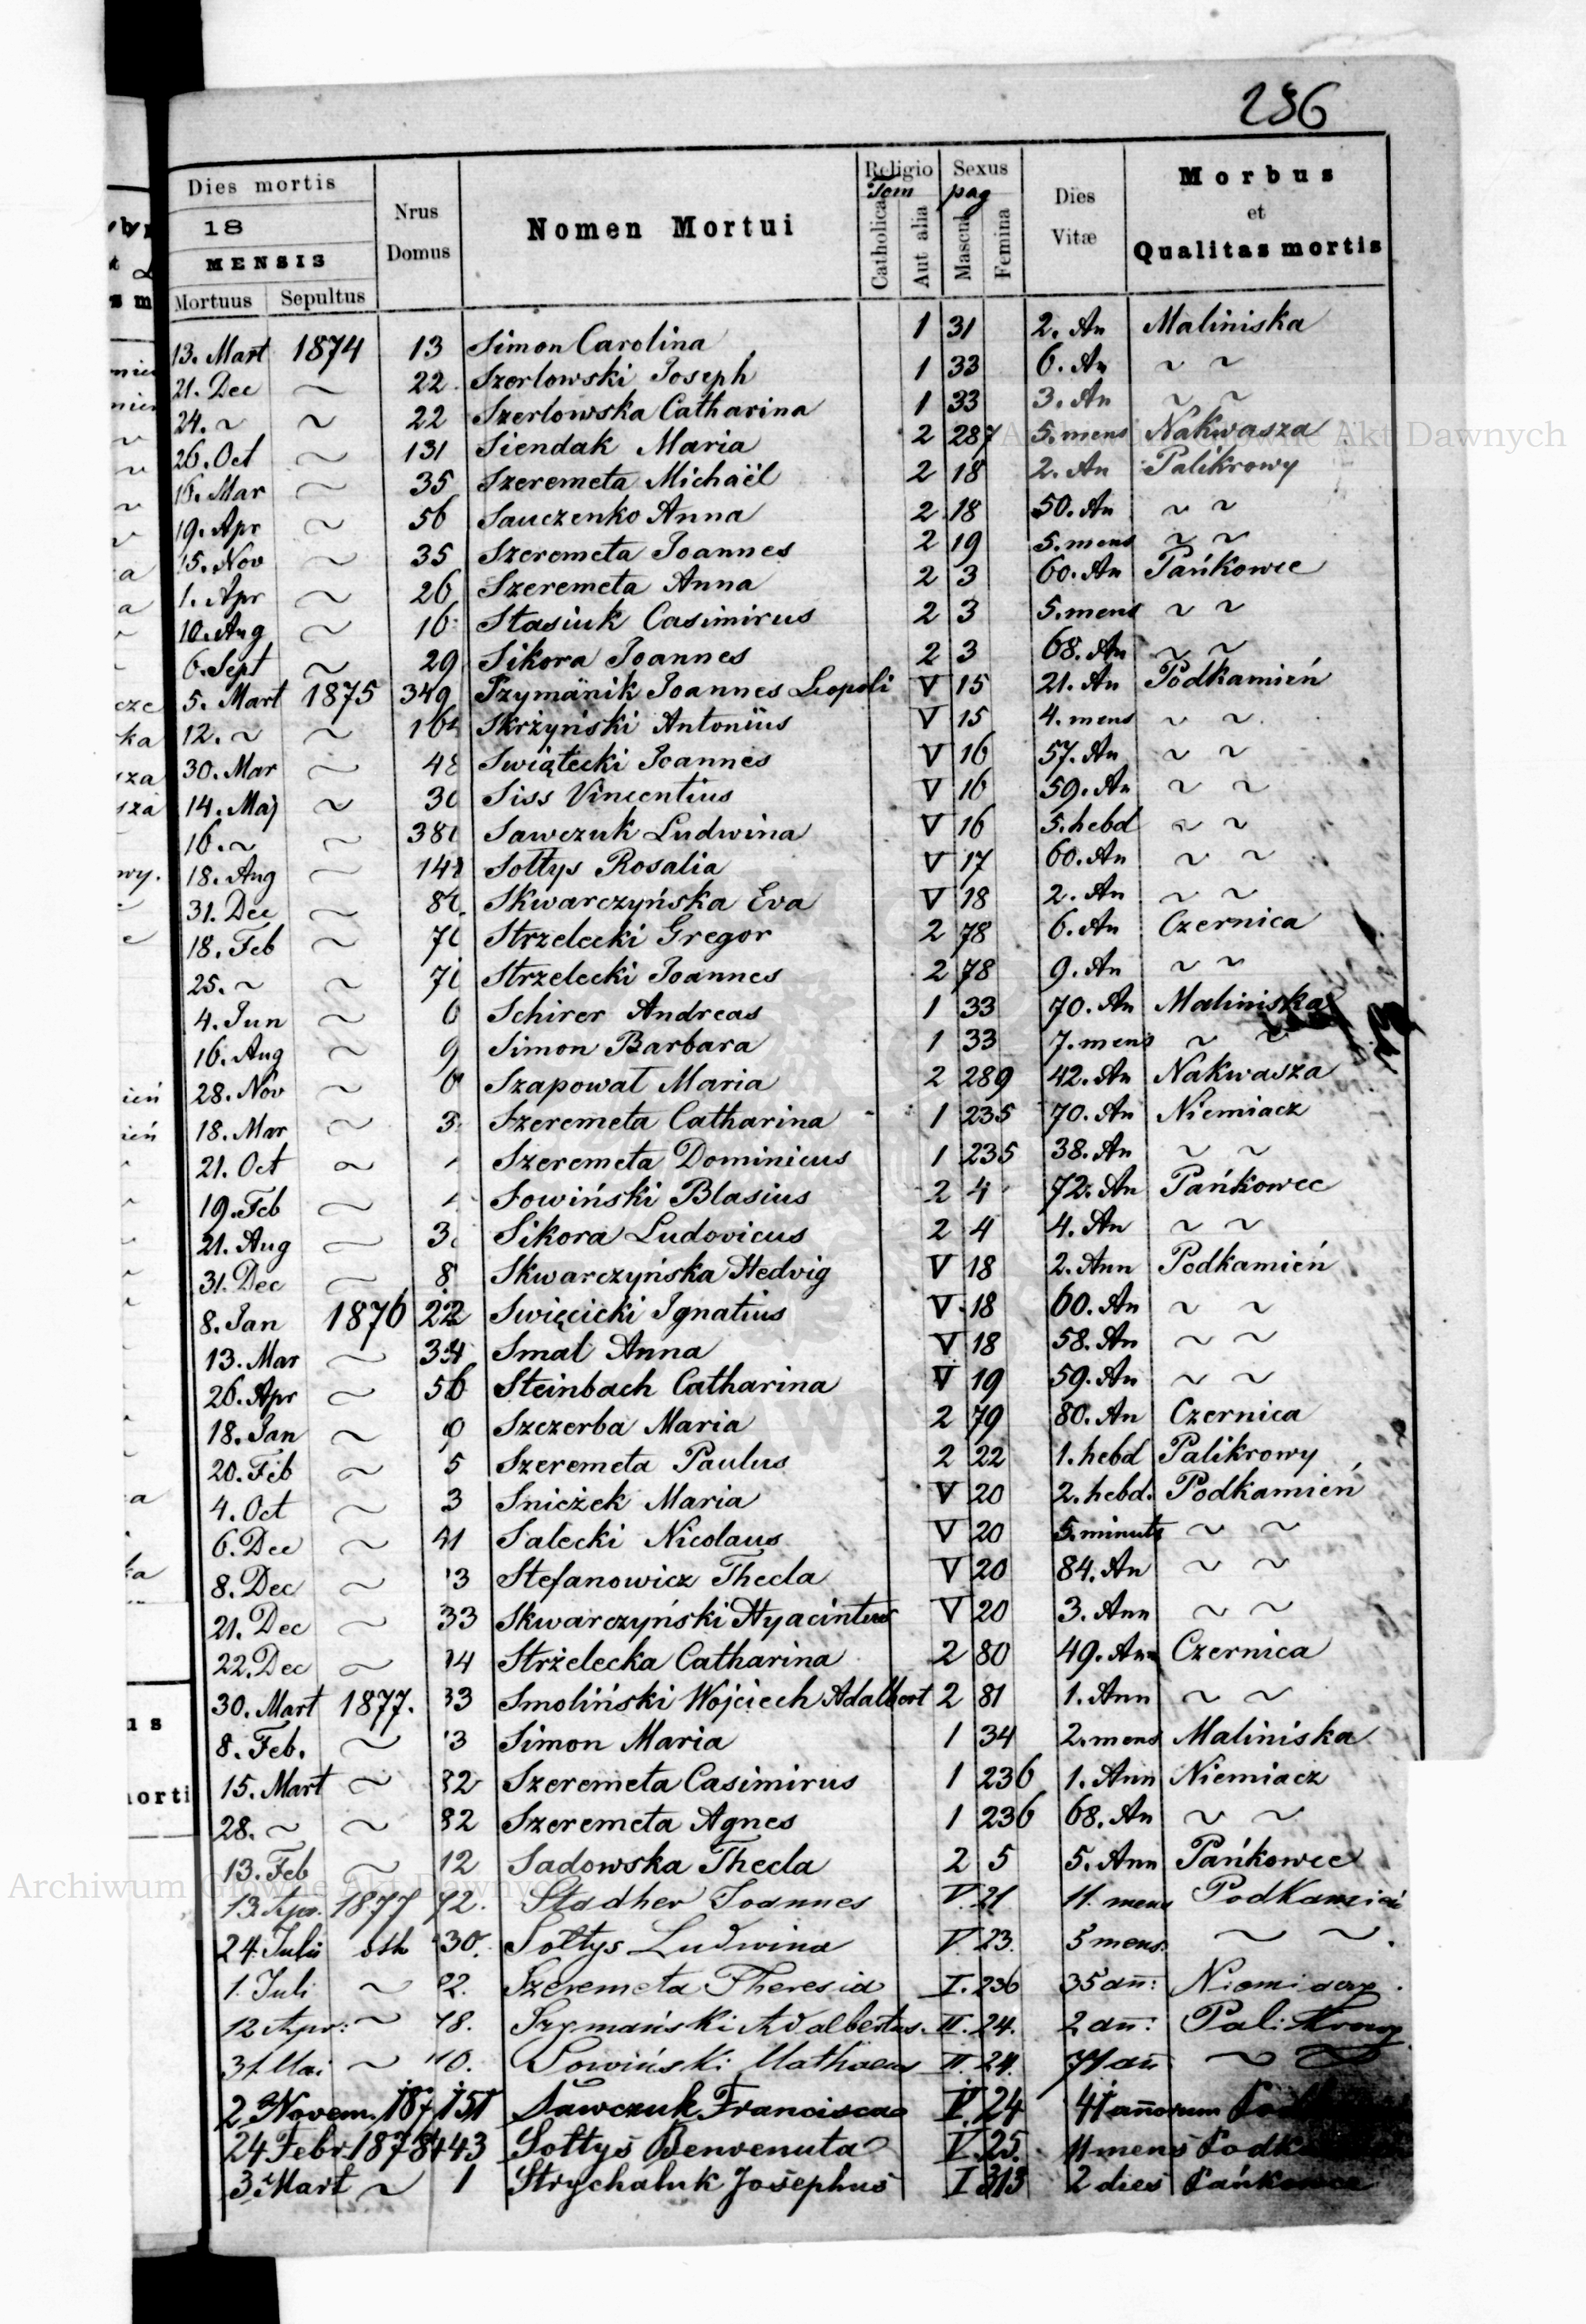 236
Dies mortis
18
MENSIS
Mortuus Sepultus
Nrus Domus
Nomen Mortui
Religio
Tom
Catholica
Aut alia
Sexus
pag
Mascul
Femina
Dies Vitæ
Morbus
et
Qualitas mortis
13. Mart 1874 13 Simon Carolina 1 31 2. An Maliniska
21. Dec ~ 22 Szerlowski Joseph 1 33 6. An ~ ~
24. ~ ~ 22 Szerlowska Catharina 1 33 3. An ~ ~
26. Oct ~ 131 Siendak Maria 2 287 5. mens Nakwasza
16. Mar ~ 35 Szeremeta Michaël 2 18 2. An Palikrowy
19. Apr ~ 56 Sauczenko Anna 2 18 50. An ~ ~
15. Nov ~ 35 Szeremeta Joannes 2 19 5. mens ~ ~
1. Apr ~ 26 Szeremeta Anna 2 3 60. An Pańkowce
10. Aug ~ 16 Stasiuk Casimirus 2 3 5. mens ~ ~
6. Sept ~ 29 Sikora Joannes 2 3 68. An ~ ~
5. Mart 1875 349 Szymänik Joannes Leopoli V 15 21. An Podkamień
12. ~ ~ Skrzyński Antonius V 15 4. mens ~ ~
30. Mar ~ Swiątecki Joannes V 16 57. An ~ ~
14. Maj ~ Siss Vincentius V 16 59. An ~ ~
16. ~ ~ Sawczuk Ludwina V 16 5. hebd ~ ~
18. Aug ~ Sołtys Rosalia V 17 60. An ~ ~
31. Dec ~ Skwarczyńska Eva V 18 2. An ~ ~
18. Feb ~ Strzelecki Gregor 2 78 6. An Czernica
25. ~ ~ Strzelecki Joannes 2 78 9. An ~ ~
4. Jun ~ Schirer Andreas 1 33 70. An Maliniska
16. Aug ~ 9 Simon Barbara 1 33 7. mens ~ ~
28. Nov ~ Szapował Maria 2 289 42. An Nakwasza
18. Mar ~ 3 Szeremeta Catharina 1 235 70. An Niemiacz
21. Oct ~ Szeremeta Dominicus 1 235 38. An ~ ~
19. Feb ~ Sowiński Blasius 2 4 72. An Pańkowce
21. Aug ~ 3 Sikora Ludovicus 2 4 4. An ~ ~
31. Dec ~ 8 Skwarczyńska Hedvig V 18 2. Ann Podkamień
8. Jan 1876 22 Swięcicki Ignatius V 18 60. An ~ ~
13. Mar ~ 34 Smal Anna V 18 58. An ~ ~
26. Apr ~ 56 Steinbach Catharina V 19 59. An ~ ~
18. Jan ~ 9 Szczerba Maria 2 79 80. An Czernica
20. Feb ~ 5 Szeremeta Paulus 2 22 1. hebd Palikrowy
4. Oct ~ 3 Snieżek Maria V 20 2. hebd. Podkamień
6. Dec ~ 41 Salecki Nicolaus V 20 5. minuts ~ ~
8. Dec ~ 13 Stefanowicz Thecla V 20 84. An ~ ~
21. Dec ~ 33 Skwarczyński Hyacintus V 20 3. Ann ~ ~
22. Dec ~ 14 Strżelecka Catharina 2 80 49. Ann Czernica
30. Mart 1877. 33 Smoliński Wojciech Adalbert 2 81 1. Ann ~ ~
8. Feb. ~ 13 Simon Maria 1 34 2. mens Maliniska
15. Mart ~ 82 Szeremeta Casimirus 1 236 1. Ann Niemiacz
28. ~ ~ 82 Szeremeta Agnes 1 236 68. An ~ ~
13. Feb ~ 12 Sadowska Thecla 2 5 5. Ann Pańkowce
13. Apr. 1877 92. Stadher Joannes V. 21 11. mens Podkamień
24. Julii 30. Sołtys Ludwina V. 23. 5 mens. ~ ~
1. Juli ~ 82. Szeremeta Theresia I. 236 35 añ: Niemiacz
12 Apr: ~ 78. Szymański Adalbertus. II. 24. 2 añ: Palikrowy
31. Mai ~ 10. Sowiński Mathaeus II. 24. 71 añ ~ ~
2. Novem. 187 151 Sawczuk Francisca V. 24 41 añorum
24 Febr. 1878 443 Sołtys Benvenuta V. 25. 11 mens
3 Mart ~ 1 Strychaluk Josephus I 313 2 dies Pańkowce
Archiwum Główne Akt Dawnych
Archiwum Główne Akt Dawnych